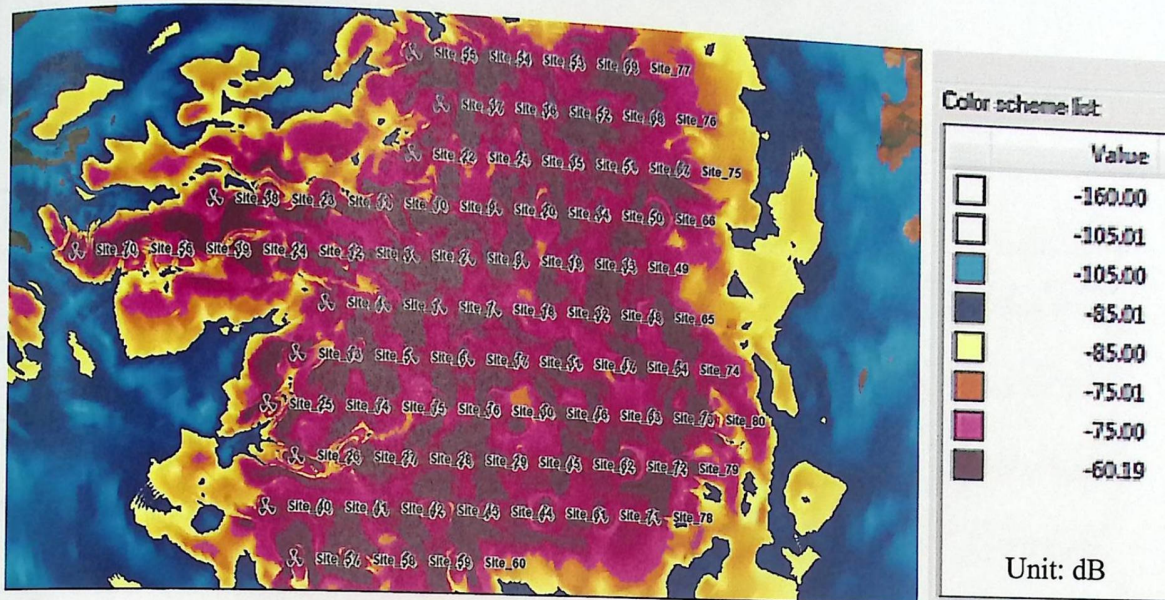 Site_55 Site_54 Site_53 Site_69 Site_77
Site_37 Site_36 Site_52 Site_68 Site_76
Site_22 Site_21 Site_35 Site_51 Site_67 Site_75
Site_38 Site_23 Site_10 Site_9 Site_20 Site_34 Site_50 Site_66
Site_70 Site_56 Site_39 Site_24 Site_12 Site_3 Site_2 Site_8 Site_19 Site_33 Site_49
Site_4 Site_1 Site_7 Site_18 Site_32 Site_48 Site_65
Site_13 Site_5 Site_6 Site_17 Site_31 Site_47 Site_64 Site_74
Site_25 Site_14 Site_15 Site_16 Site_30 Site_46 Site_63 Site_73 Site_80
Site_26 Site_27 Site_28 Site_29 Site_45 Site_62 Site_72 Site_79
Site_40 Site_41 Site_42 Site_43 Site_44 Site_61 Site_71 Site_78
Site_57 Site_58 Site_59 Site_60
Color scheme list:
Value
-160.00
-105.01
-105.00
-85.01
-85.00
-75.01
-75.00
-60.19
Unit: dB